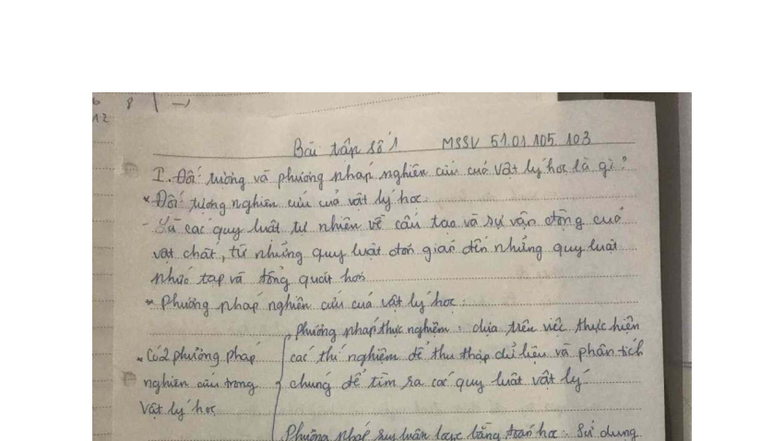 Bài tập số 1 MSSV 51.01.105.103
I. Đối tượng và phương pháp nghiên cứu của vật lý học là gì?
* Đối tượng nghiên cứu của vật lý học:
- Là các quy luật tự nhiên về cấu tạo và sự vận động của
vật chất, từ những quy luật đơn giản đến những quy luật
phức tạp và tổng quát hơn
* Phương pháp nghiên cứu của vật lý học:
Phương pháp thực nghiệm: dựa trên việc thực hiện
* Có 2 phương pháp các thí nghiệm để thu thập dữ liệu và phân tích
nghiên cứu trong chúng để tìm ra các quy luật vật lý.
Vật lý học
Phương pháp suy luận logic bằng toán học: Sử dụng